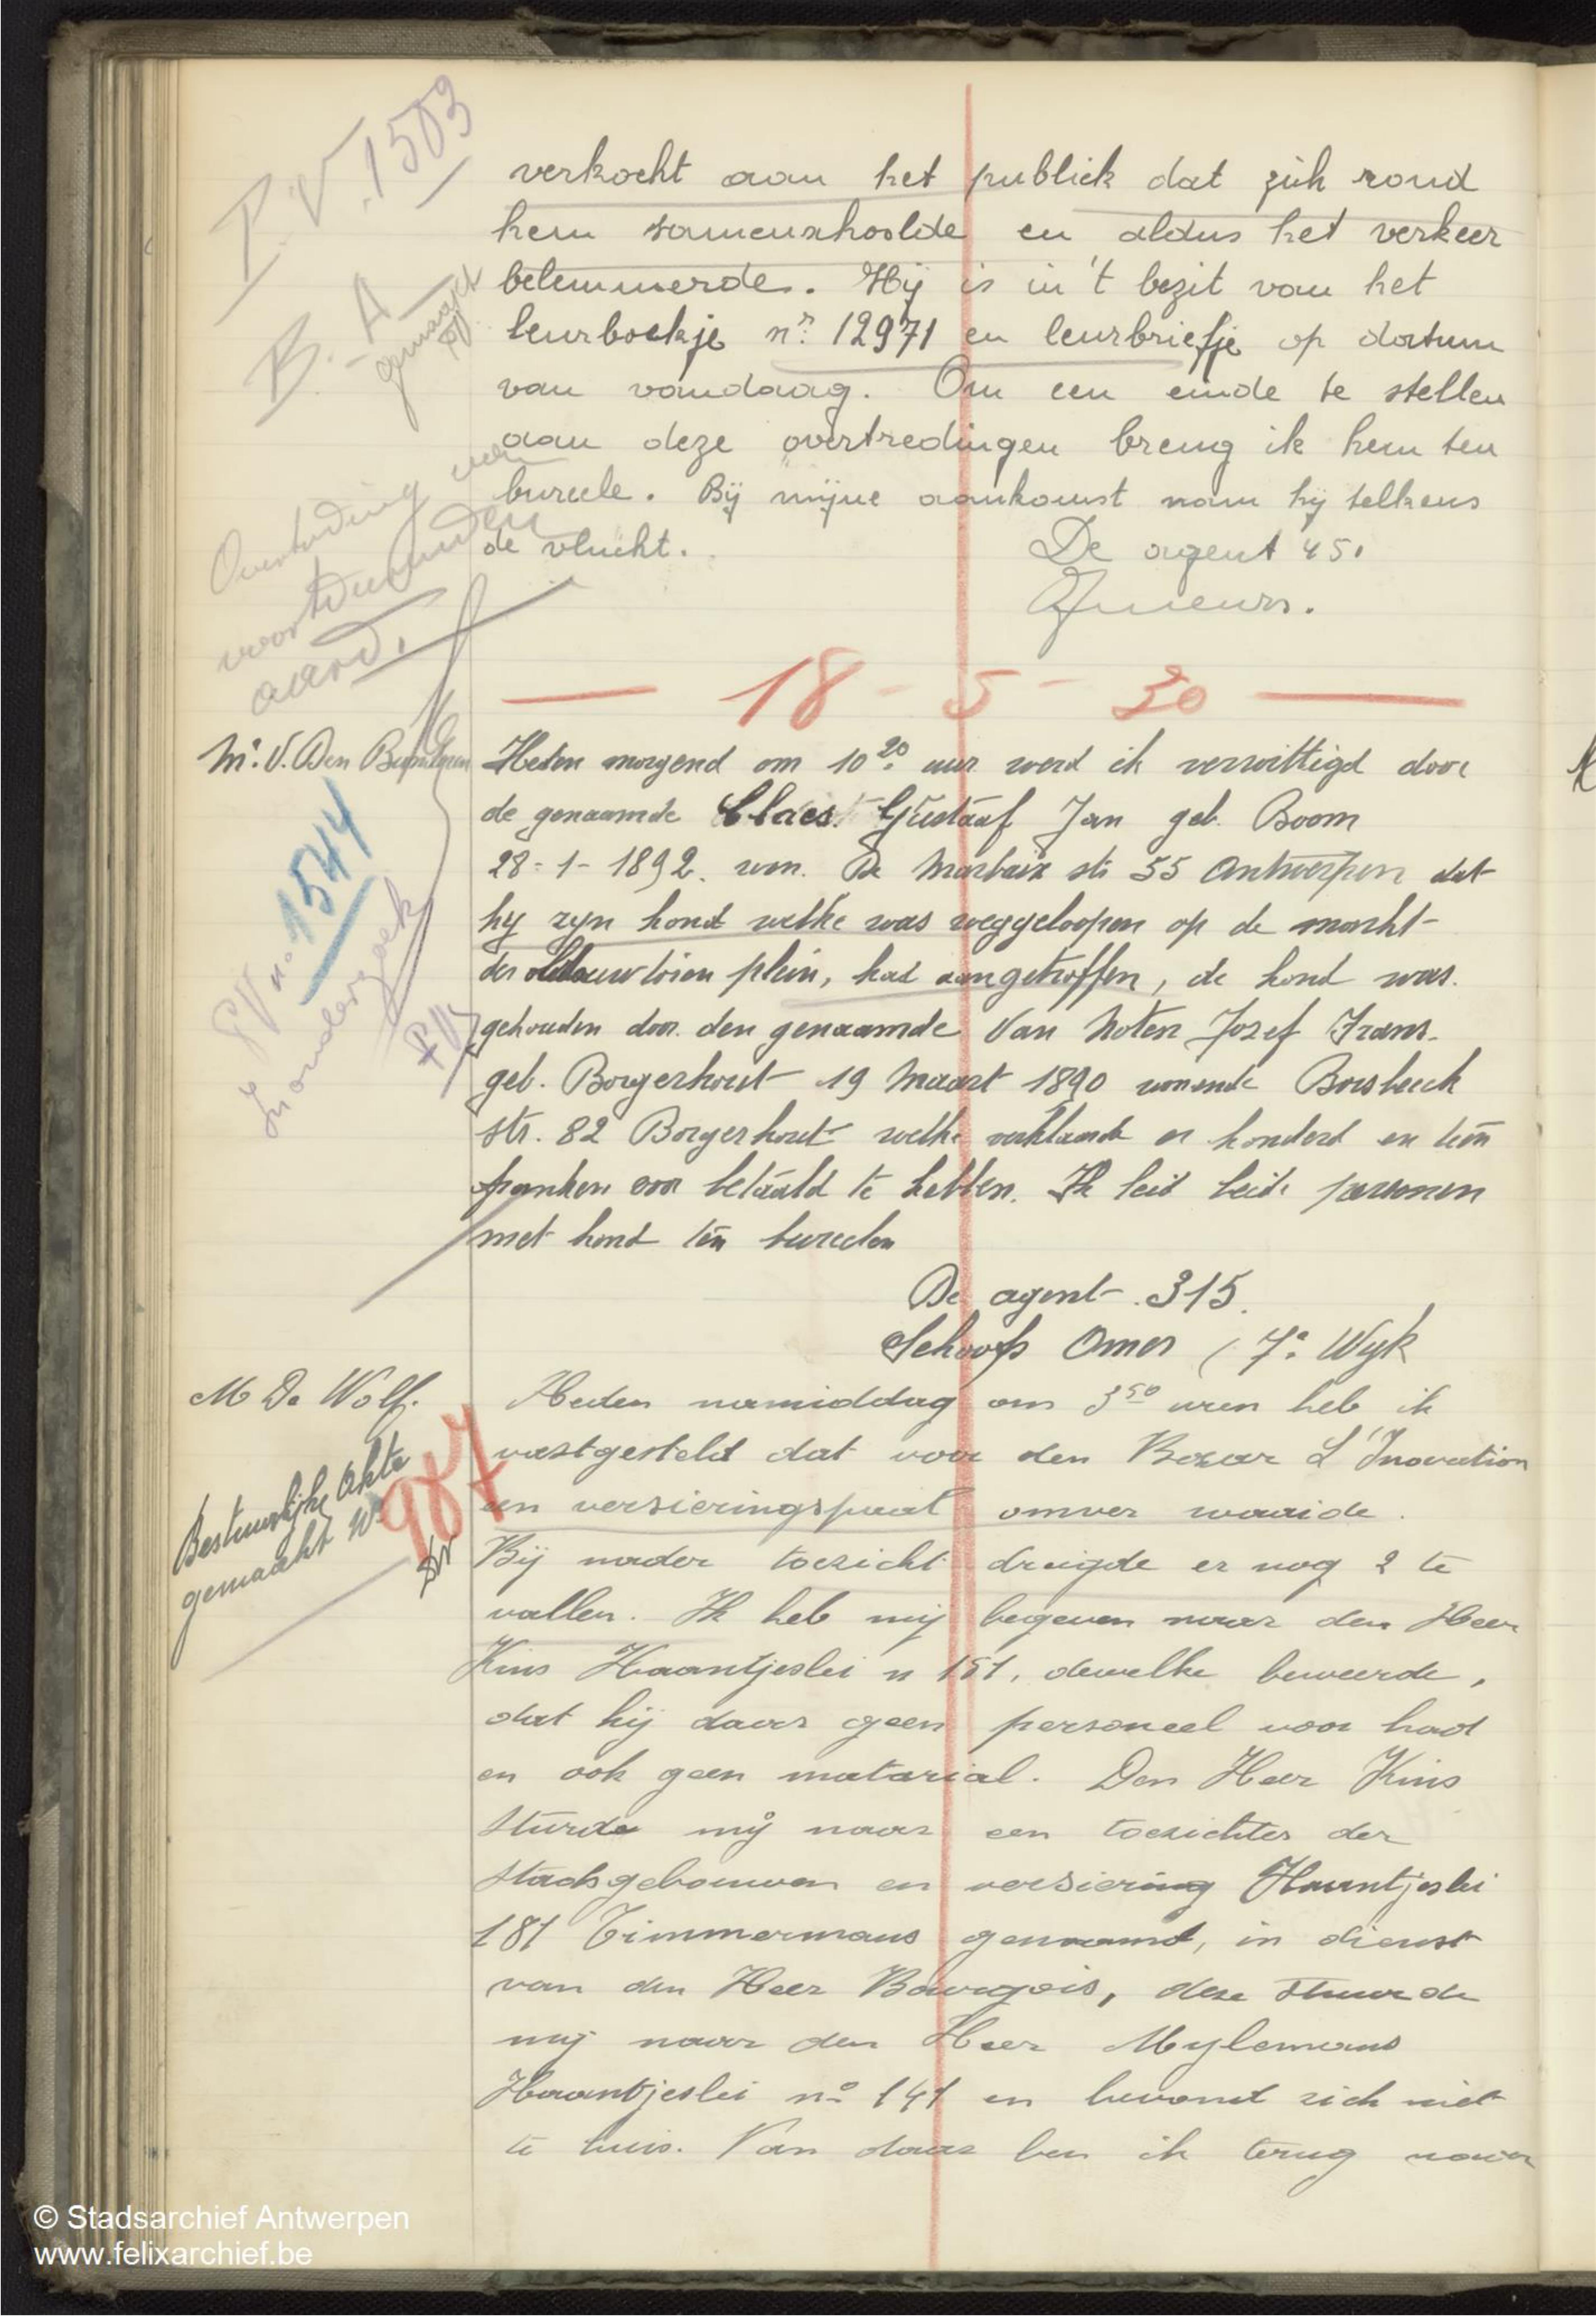 P.V. 1503
B. A
gemaakt
Overtreding van
voortdurenden
aard.
verkocht aan het publiek dat zich rond
hem samenschoolde en aldus het verkeer
belemmerde. Hij is in 't bezit van het
leurboekje nr. 12971 en leurbriefje op datum
van vandaag. Om een einde te stellen
aan deze overtredingen breng ik hem ten
bureele. Bij mijne aankomst nam hij telkens
de vlucht.
De agent 451
18 - 5 - 30
Mr. V. Den
PV no 1544
In onderzoek
Heden morgend om 10 20 uur werd ik verwittigd door
de genaamde Claes Gustaaf Jan geb. Boom
28-1-1892. won. De Marbaix str 55 Antwerpen dat
hy zyn hond welke was weggeloopen op de markt
der plein, had aangetroffen, de hond was
gehouden door den genaamde Van Noten Jozef Frans
geb. Borgerhout 19 Maart 1890 wonende Borsbeek
str. 82 Borgerhout welke verklaarde er honderd en tien
franken voor betaald te hebben. Ik leid beide personen
met hond ten bureelen
De agent 315.
Schoofs Omer (7e Wyk
M De Wolf.
Bestuurlijke Akte
gemaakt No 987
Heden namiddag om 3 50 uren heb ik
vastgesteld dat voor den Bazar L'Inovation
een versieringspaal omver waaide.
Bij nader toezicht dreigde er nog 2 te
vallen. Ik heb mij begeven naar den Heer
Kins Haantjeslei n 151, dewelke beweerde,
dat hij daar geen personeel voor had
en ook geen matarial. Den Heer Kins
sturde mij naar een toezichter der
stadsgebouwen en versiering Haantjeslei
181 Timmermans genaamd, in dienst
van den Heer Bourgois, deze stuurde
mij naar den Heer Mylemans
Haantjeslei no 141 en bevond zich niet
te huis. Van daar ben ik terug naar
© Stadsarchief Antwerpen
www.felixarchief.be